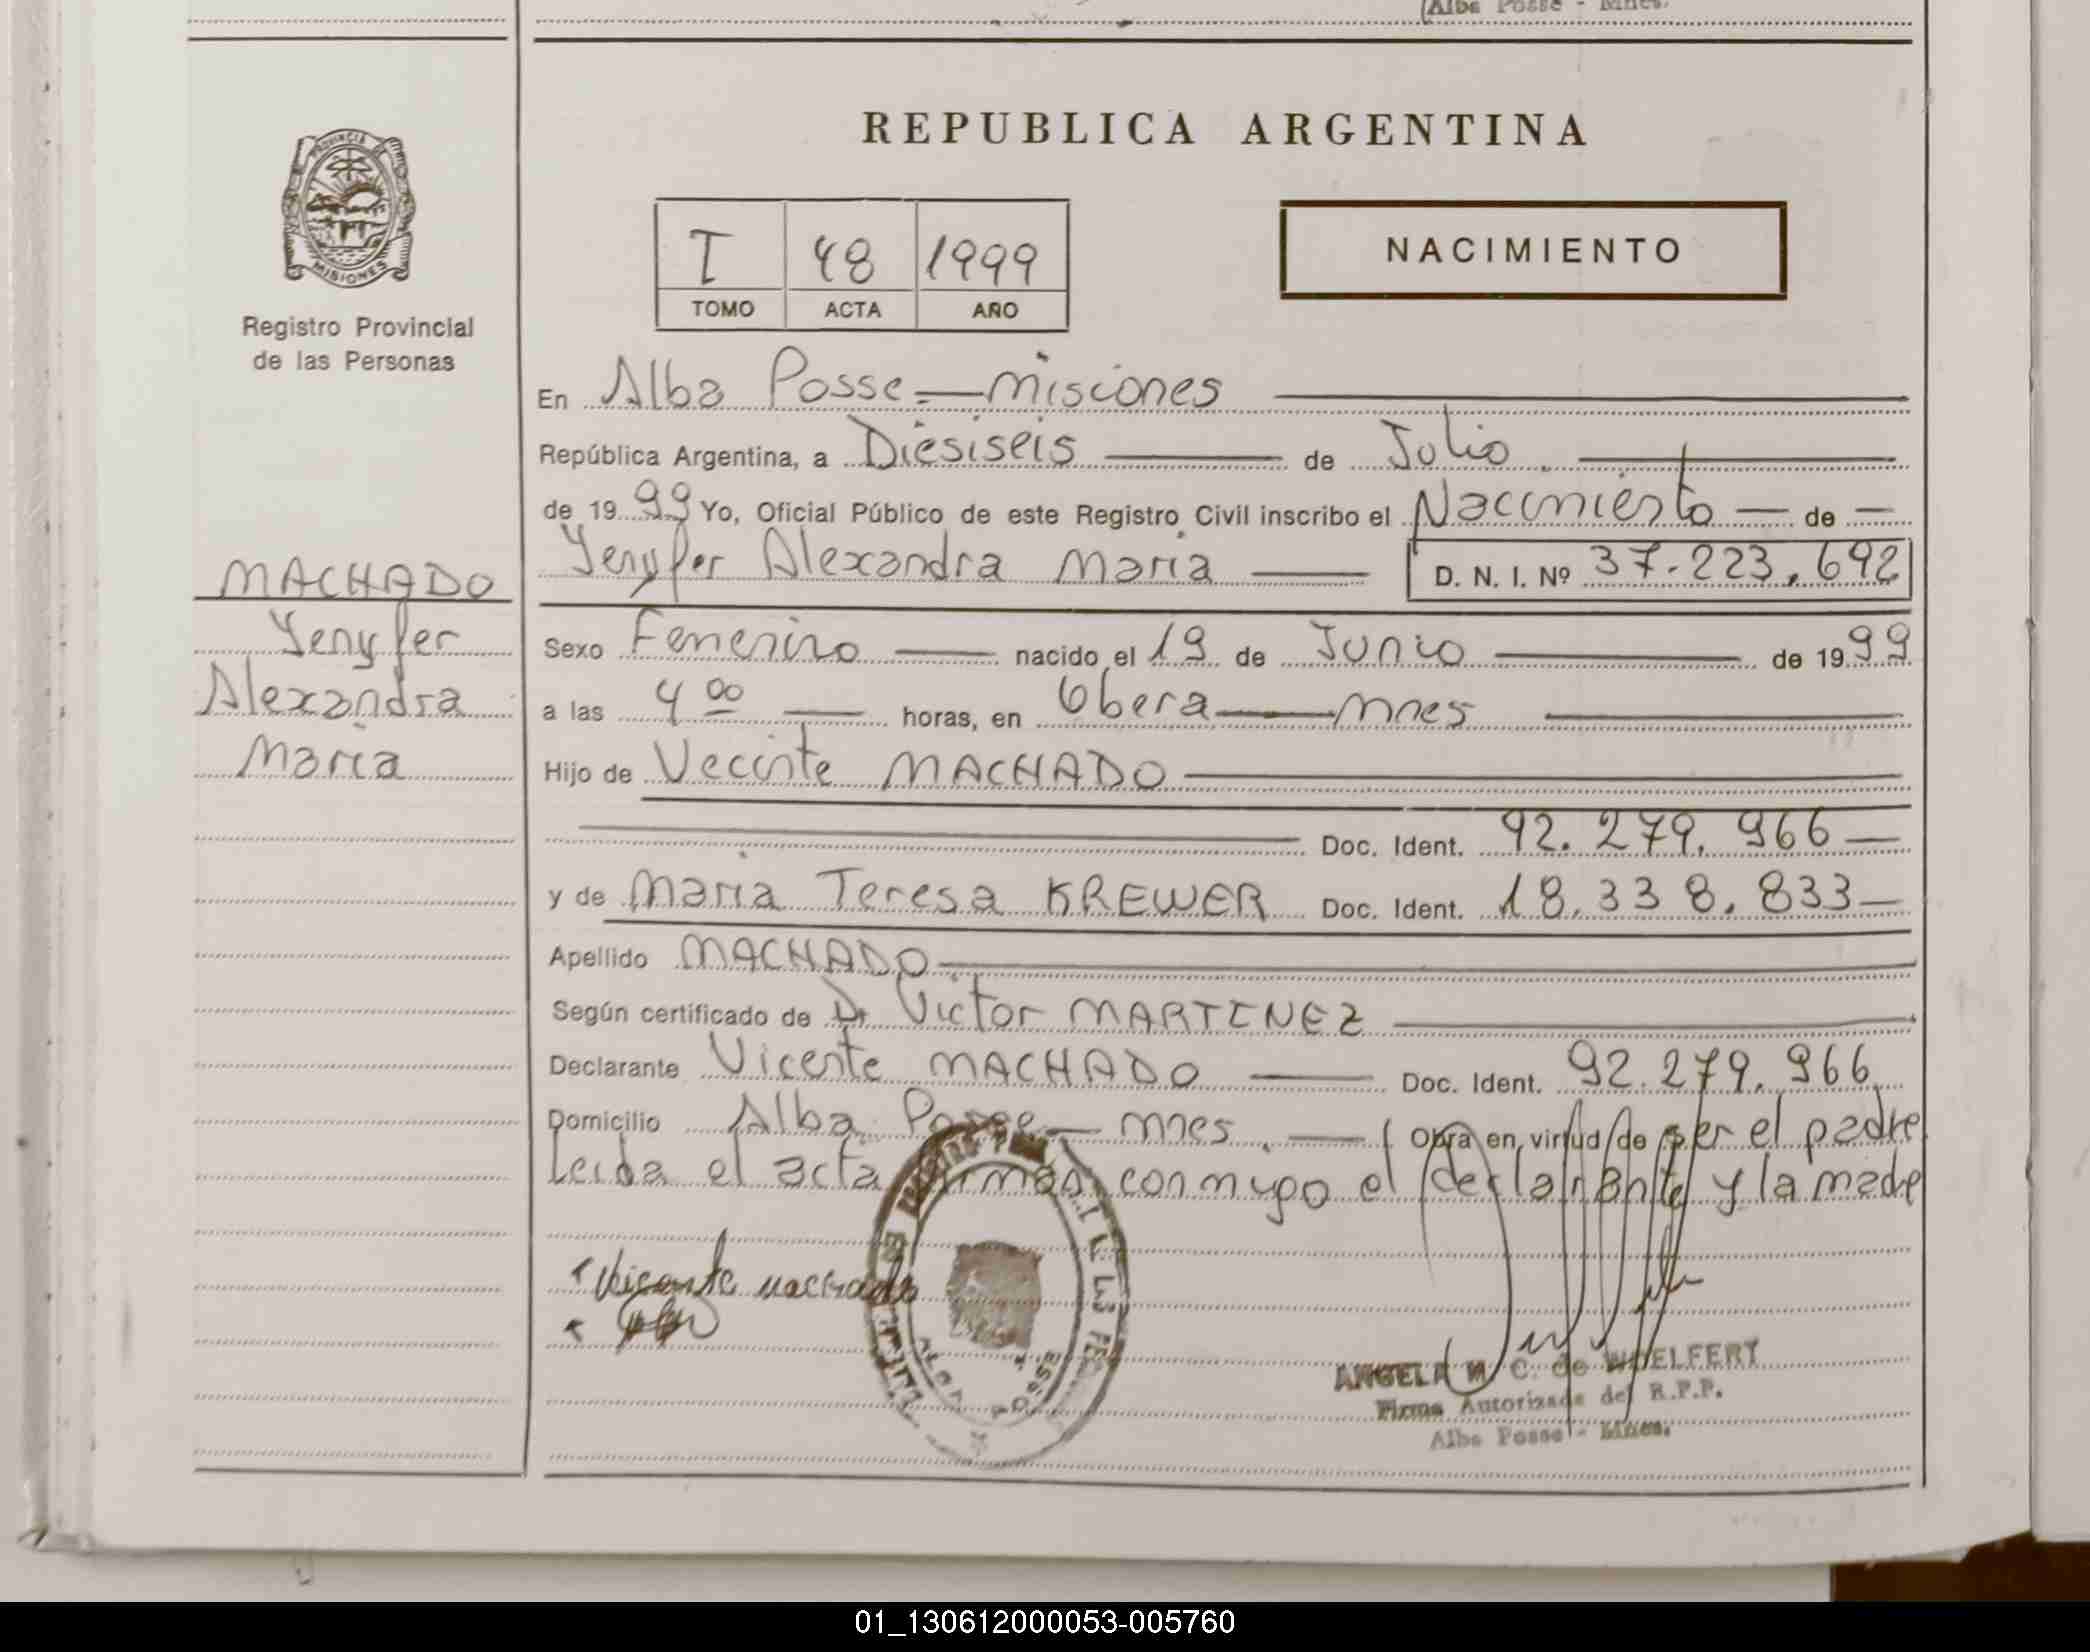 (Alba Posse - Mnes.
REPUBLICA ARGENTINA
PROVINCIA DE
MISIONES
Registro Provincial
de las Personas
I 48 1999
TOMO ACTA AÑO
NACIMIENTO
En Alba Posse - Misiones
República Argentina, a Diesiseis de Julio
de 1999 Yo, Oficial Público de este Registro Civil inscribo el Nacimiento de
Yenyfer Alexandra Maria D. N. I. Nº 37.223.692
MACHADO
Yenyfer
Alexandra
Maria
Sexo Femenino nacido el 19 de Junio de 1999
a las 4 00 horas, en Obera - Mnes
Hijo de Vecinte MACHADO
Doc. Ident. 92.279.966
y de Maria Teresa KREWER Doc. Ident. 18.338.833
Apellido MACHADO
Según certificado de Dr Victor MARTINEZ
Declarante Vicente MACHADO Doc. Ident. 92.279.966
Domicilio Alba Posse - Mnes. Obra en virtud de ser el padre
Leida el acta firman conmigo el declarante y la madre
Vicente Machado
ALBA POSSE
ANGELA M. C. de WOELFERT
Firma Autorizada del R.P.P.
Alba Posse - Mnes.
01_130612000053-005760